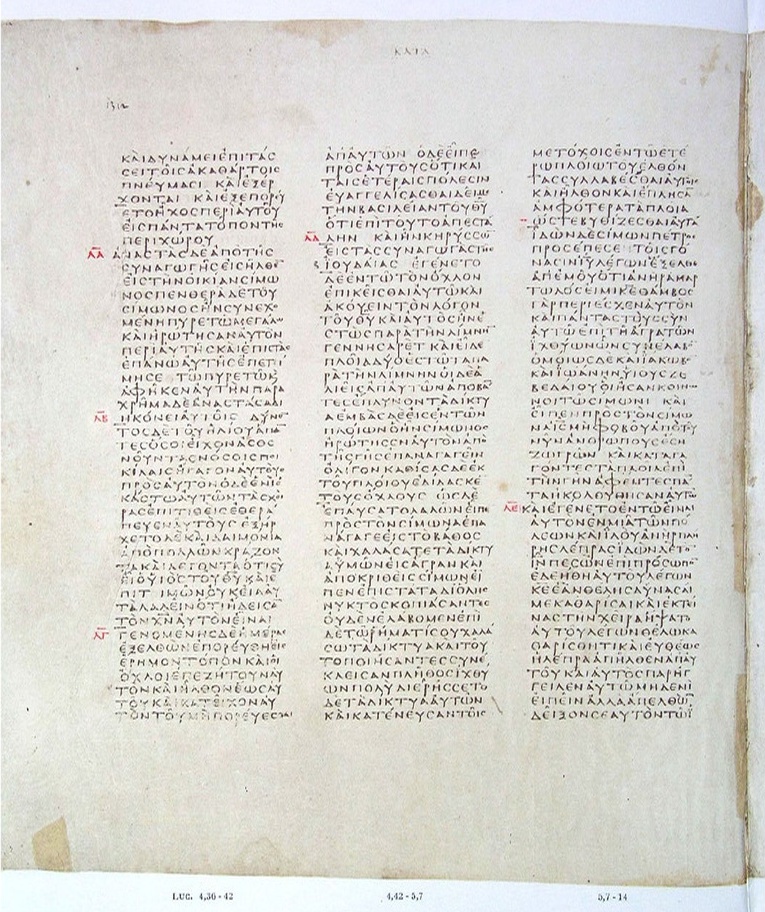 ΚΑΤΑ
1312
ΚΑΙΔΥΝΑΜΕΙΕΠΙΤΑϹ
ϹΕΙΤΟΙϹΑΚΑΘΑΡΤΟΙϹ
ΠΝΕΥΜΑϹΙ ΚΑΙΕΞΕΡ
ΧΟΝΤΑΙ ΚΑΙΕΞΕΠΟΡΕΥ
ΕΤΟΗΧΟϹΠΕΡΙΑΥΤΟΥ
ΕΙϹΠΑΝΤΑΤΟΠΟΝΤΗϹ
ΠΕΡΙΧΩΡΟΥ
ΛΑ ΑΝΑϹΤΑϹΔΕΑΠΟΤΗϹ
ϹΥΝΑΓΩΓΗϹΕΙϹΗΛΘΕ
ΕΙϹΤΗΝΟΙΚΙΑΝϹΙΜΩ
ΝΟϹΠΕΝΘΕΡΑΔΕΤΟΥ
ϹΙΜΩΝΟϹΗΝϹΥΝΕΧΟ
ΜΕΝΗΠΥΡΕΤΩΜΕΓΑΛΩ
ΚΑΙΗΡΩΤΗϹΑΝΑΥΤΟΝ
ΠΕΡΙΑΥΤΗϹΚΑΙΕΠΙϹΤΑϹ
ΕΠΑΝΩΑΥΤΗϹΕΠΕΤΙ
ΜΗϹΕ ΤΩΠΥΡΕΤΩΚΑΙ
ΑΦΗΚΕΝΑΥΤΗΝΠΑΡΑ
ΧΡΗΜΑΔΕΑΝΑϹΤΑϹΑΔΙ
ΛΒ ΗΚΟΝΕΙΑΥΤΟΙϹ ΔΥΝΟ̅
ΤΟϹΔΕΤΟΥΗΛΙΟΥΑΠΑ̅
ΤΕϹΟϹΟΙΕΙΧΟΝΑϹΘΕ
ΝΟΥΝΤΑϹΝΟϹΟΙϹΠΟΙ
ΚΙΛΑΙϹΗΓΑΓΟΝΑΥΤΟΥϹ
ΠΡΟϹΑΥΤΟΝΟΔΕΕΝΙΕ
ΚΑϹΤΩΑΥΤΩΝΤΑϹΧΕΙ
ΡΑϹΕΠΙΤΙΘΕΙϹΕΘΕΡΑ
ΠΕΥΕΝΑΥΤΟΥϹ ΕΞΗΡ
ΧΕΤΟΔΕΚΑΙΔΑΙΜΟΝΙΑ
ΑΠΟΠΟΛΛΩΝΚΡΑΖΟΝ
ΤΑΚΑΙΛΕΓΟΝΤΑΟΤΙϹΥ
ΕΙΟΥΙΟϹΤΟΥΘΥ ΚΑΙΕ
ΠΙΤΙΜΩΝΟΥΚΕΙΑΑΥ
ΤΑΛΑΛΕΙΝΟΤΙΗΔΕΙϹΑ̅
ΤΟΝΧΝΑΥΤΟΝΕΙΝΑΙ
ΛΓ ΓΕΝΟΜΕΝΗϹΔΕΗΜΕΡΑϹ
ΕΞΕΛΘΩΝΕΠΟΡΕΥΘΗΕΙϹ
ΕΡΗΜΟΝΤΟΠΟΝΚΑΙΟΙ
ΟΧΛΟΙΕΠΕΖΗΤΟΥΝΑΥ
ΤΟΝΚΑΙΗΛΘΟΝΕΩϹΑΥ
ΤΟΥΚΑΙΚΑΤΕΙΧΟΝΑΥ
ΤΟΝΤΟΥΜΗΠΟΡΕΥΕϹΘΑΙ
ΑΠΑΥΤΩΝ ΟΔΕΕΙΠΕ̅
ΠΡΟϹΑΥΤΟΥϹΟΤΙΚΑΙ
ΤΑΙϹΕΤΕΡΑΙϹΠΟΛΕϹΙΝ
ΕΥΑΓΓΕΛΙϹΑϹΘΑΙΔΕΙΜΕ
ΤΗΝΒΑϹΙΛΕΙΑΝΤΟΥΘΥ
ΟΤΙΕΠΙΤΟΥΤΟΑΠΕϹΤΑ
ΛΔ ΛΗΝ ΚΑΙΗΝΚΗΡΥϹϹΩ̅
ΕΙϹΤΑϹϹΥΝΑΓΩΓΑϹΤΗϹ
ΙΟΥΔΑΙΑϹ ΕΓΕΝΕΤΟ
ΔΕΕΝΤΩΤΟΝΟΧΛΟΝ
ΕΠΙΚΕΙϹΘΑΙΑΥΤΩΚΑΙ
ΑΚΟΥΕΙΝΤΟΝΛΟΓΟΝ
ΤΟΥΘΥΚΑΙΑΥΤΟϹΗΝΕ
ϹΤΩϹΠΑΡΑΤΗΝΛΙΜΝΗ̅
ΓΕΝΝΗϹΑΡΕΤ ΚΑΙΕΙΔΕ
ΠΛΟΙΑΔΥΟΕϹΤΩΤΑΠΑ
ΡΑΤΗΝΛΙΜΝΗΝΟΙΔΕΑ
ΛΙΕΙϹΑΠΑΥΤΩΝΑΠΟΒΑ̅
ΤΕϹΕΠΛΥΝΟΝΤΑΔΙΚΤΥ
Α ΕΜΒΑϹΔΕΕΙϹΕΝΤΩΝ
ΠΛΟΙΩΝΟΗΝϹΙΜΩΝΟϹ
ΗΡΩΤΗϹΕΝΑΥΤΟΝΑΠΟ
ΤΗϹΓΗϹΕΠΑΝΑΓΑΓΕΙΝ
ΟΛΙΓΟΝΚΑΘΙϹΑϹΔΕΕΚ
ΤΟΥΠΛΟΙΟΥΕΔΙΔΑϹΚΕ
ΤΟΥϹΟΧΛΟΥϹ ΩϹΔΕ
ΕΠΑΥϹΑΤΟΛΑΛΩΝΕΙΠΕ
ΠΡΟϹΤΟΝϹΙΜΩΝΑΕΠΑ
ΝΑΓΑΓΕΕΙϹΤΟΒΑΘΟϹ
ΚΑΙΧΑΛΑϹΑΤΕΤΑΔΙΚΤΥ
ΑΥΜΩΝΕΙϹΑΓΡΑΝ ΚΑΙ
ΑΠΟΚΡΙΘΕΙϹϹΙΜΩΝΕΙ
ΠΕΝΕΠΙϹΤΑΤΑΔΙΟΛΗϹ
ΝΥΚΤΟϹΚΟΠΙΑϹΑΝΤΕϹ
ΟΥΔΕΝΕΛΑΒΟΜΕΝΕΠΙ
ΔΕΤΩΡΗΜΑΤΙϹΟΥΧΑΛΑ
ϹΩΤΑΔΙΚΤΥΑΚΑΙΤΟΥ
ΤΟΠΟΙΗϹΑΝΤΕϹϹΥΝΕ
ΚΛΕΙϹΑΝΠΛΗΘΟϹΙΧΘΥ
ΩΝΠΟΛΥ ΔΙΕΡΗϹϹΕΤΟ
ΔΕΤΑΔΙΚΤΥΑΑΥΤΩΝ
ΚΑΙΚΑΤΕΝΕΥϹΑΝΤΟΙϹ
ΜΕΤΟΧΟΙϹΕΝΤΩΕΤΕ
ΡΩΠΛΟΙΩΤΟΥΕΛΘΟΝ
ΤΑϹϹΥΛΛΑΒΕϹΘΑΙΑΥΤΟΙϹ
ΚΑΙΗΛΘΟΝΚΑΙΕΠΛΗϹΑ̅
ΑΜΦΟΤΕΡΑΤΑΠΛΟΙΑ
ΩϹΤΕΒΥΘΙΖΕϹΘΑΙΑΥΤΑ
ΙΔΩΝΔΕϹΙΜΩΝΠΕΤΡΟϹ
ΠΡΟϹΕΠΕϹΕ ΤΟΙϹΓΟ
ΝΑϹΙΝΙΥΛΕΓΩΝΕΞΕΛΘΕ
ΑΠΕΜΟΥΟΤΙΑΝΗΡΑΜΑΡ
ΤΩΛΟϹΕΙΜΙΚΕΘΑΜΒΟϹ
ΓΑΡΠΕΡΙΕϹΧΕΝΑΥΤΟΝ
ΚΑΙΠΑΝΤΑϹΤΟΥϹϹΥΝ
ΑΥΤΩΕΠΙΤΗΑΓΡΑΤΩΝ
ΙΧΘΥΩΝΩΝϹΥΝΕΛΑΒΟ̅
ΟΜΟΙΩϹΔΕΚΑΙΙΑΚΩΒΟ̅
ΚΑΙΙΩΑΝΗΝΥΙΟΥϹΖΕ
ΒΕΔΑΙΟΥΟΙΗϹΑΝΚΟΙΝΩ
ΝΟΙΤΩϹΙΜΩΝΙ ΚΑΙ
ΕΙΠΕΝΠΡΟϹΤΟΝϹΙΜΩ
ΝΑΙϹΜΗΦΟΒΟΥΑΠΟΤΟΥ
ΝΥΝΑΝΘΡΩΠΟΥϹΕϹΗ
ΖΩΓΡΩΝ ΚΑΙΚΑΤΑΓΑ
ΓΟΝΤΕϹΤΑΠΛΟΙΑΕΠΙ
ΤΗΝΓΗΝΑΦΕΝΤΕϹΠΑ̅
ΤΑΗΚΟΛΟΥΘΗϹΑΝΑΥΤΩ
ΛΕ ΚΑΙΕΓΕΝΕΤΟΕΝΤΩΕΙΝΑΙ
ΑΥΤΟΝΕΝΜΙΑΤΩΝΠΟ
ΛΕΩΝΚΑΙΙΔΟΥΑΝΗΡΠΛΗ
ΡΗϹΛΕΠΡΑϹΙΔΩΝΔΕΤΟ̅
ΙΝΠΕϹΩΝΕΠΙΠΡΟϹΩΠΟ̅
ΕΔΕΗΘΗΑΥΤΟΥΛΕΓΩΝ
ΚΕΕΑΝΘΕΛΗϹΔΥΝΑϹΑΙ
ΜΕΚΑΘΑΡΙϹΑΙΚΑΙΕΚΤΕΙ
ΝΑϹΤΗΝΧΕΙΡΑΗΨΑΤΟ
ΑΥΤΟΥΛΕΓΩΝΘΕΛΩΚΑ
ΘΑΡΙϹΘΗΤΙΚΑΙΕΥΘΕΩϹ
ΗΛΕΠΡΑΑΠΗΛΘΕΝΑΠΑΥ
ΤΟΥ ΚΑΙΑΥΤΟϹΠΑΡΗΓ
ΓΕΙΛΕΝΑΥΤΩΜΗΔΕΝΙ
ΕΙΠΕΙΝΑΛΛΑΑΠΕΛΘΩ̅
ΔΕΙΞΟΝϹΕΑΥΤΟΝΤΩΙ
LUC. 4,36 - 42
4,42 - 5,7
5,7 - 14